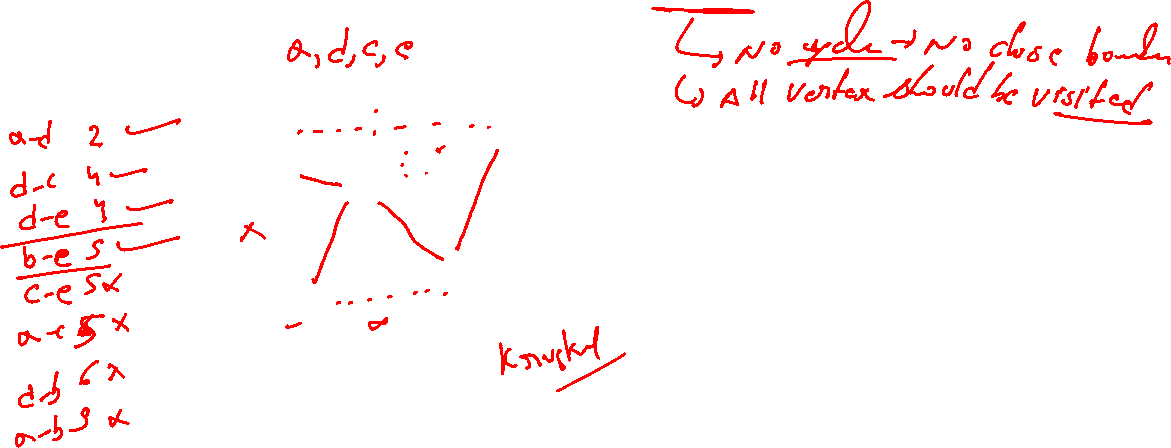 a,d,c,e
No cycle → No close
All vertex should be visited
a-d 2
d-c 4
d-e 4
b-e 5
c-e 5 x
a-c 5 x
d-b 6 x
a-b 9 x
x